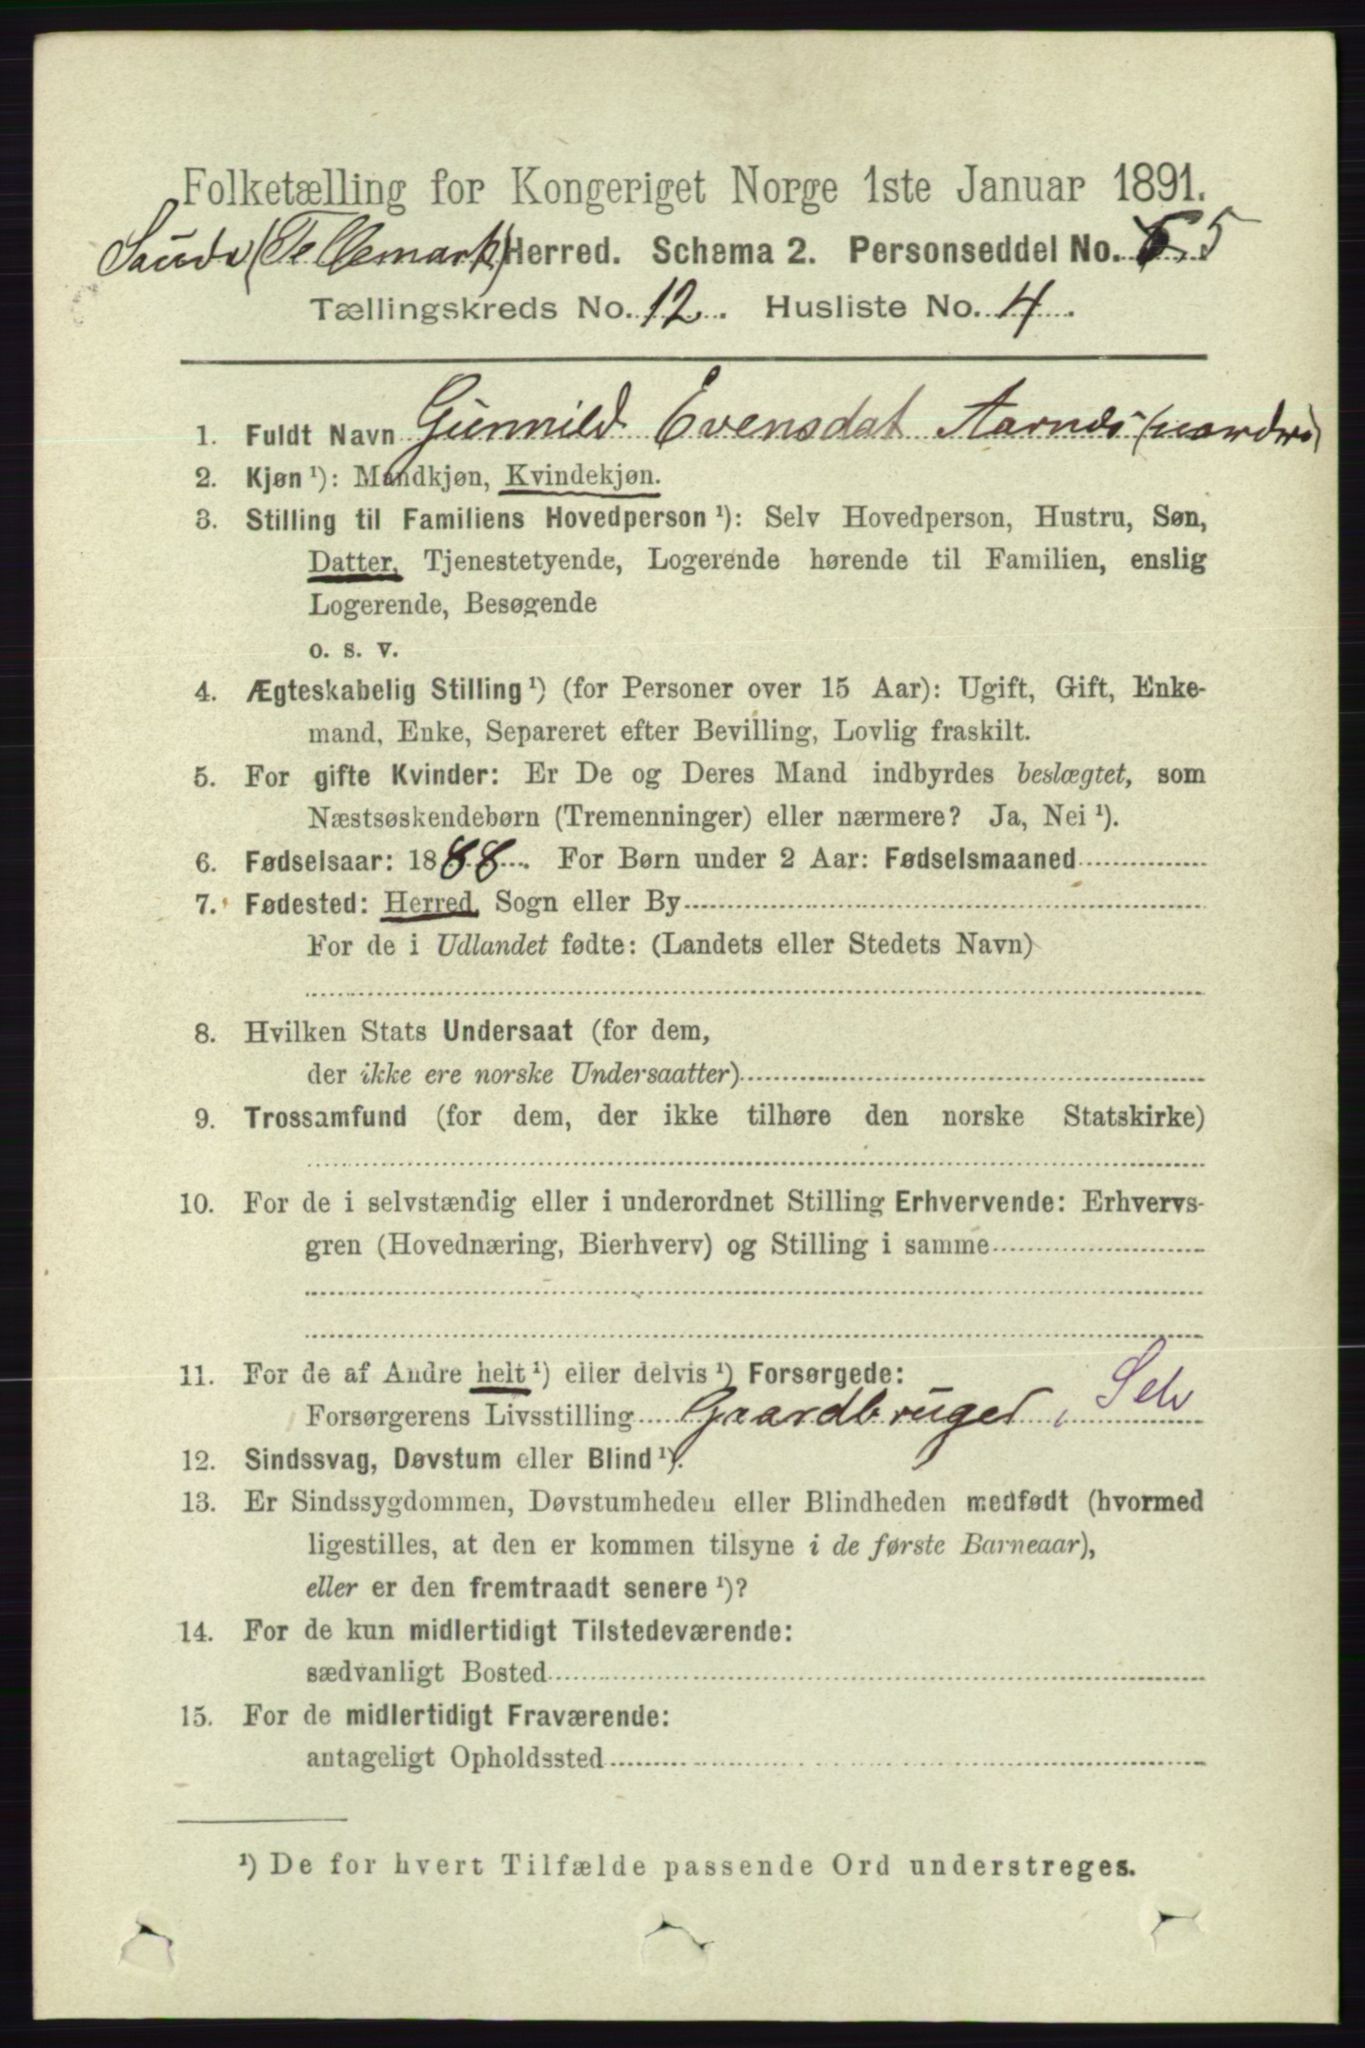 Folketælling for Kongeriget Norge 1ste Januar 1891.
Saude (Tellemark) Herred. Schema 2. Personseddel No. 5
Tællingskreds No. 12. Husliste No. 4.
1. Fuldt Navn Gunnild Evensdat Aarnes (nordre)
2. Kjøn ¹): Mandkjøn, Kvindekjøn.
3. Stilling til Familiens Hovedperson ¹): Selv Hovedperson, Hustru, Søn,
Datter, Tjenestetyende, Logerende hørende til Familien, enslig
Logerende, Besøgende
o. s. v.
4. Ægteskabelig Stilling ¹) (for Personer over 15 Aar): Ugift, Gift, Enke-
mand, Enke, Separeret efter Bevilling, Lovlig fraskilt.
5. For gifte Kvinder: Er De og Deres Mand indbyrdes beslægtet, som
Næstsøskendebørn (Tremenninger) eller nærmere? Ja, Nei ¹).
6. Fødselsaar: 1888. For Børn under 2 Aar: Fødselsmaaned
7. Fødested: Herred, Sogn eller By
For de i Udlandet fødte: (Landets eller Stedets Navn)
8. Hvilken Stats Undersaat (for dem,
der ikke ere norske Undersaatter)
9. Trossamfund (for dem, der ikke tilhøre den norske Statskirke)
10. For de i selvstændig eller i underordnet Stilling Erhvervende: Erhvervs-
gren (Hovednæring, Bierhverv) og Stilling i samme
11. For de af Andre helt ¹) eller delvis ¹) Forsørgede:
Forsørgerens Livsstilling Gaardbruger, Selv
12. Sindssvag, Døvstum eller Blind ¹).
13. Er Sindssygdommen, Døvstumheden eller Blindheden medfødt (hvormed
ligestilles, at den er kommen tilsyne i de første Barneaar),
eller er den fremtraadt senere ¹)?
14. For de kun midlertidigt Tilstedeværende:
sædvanligt Bosted
15. For de midlertidigt Fraværende:
antageligt Opholdssted
¹) De for hvert Tilfælde passende Ord understreges.